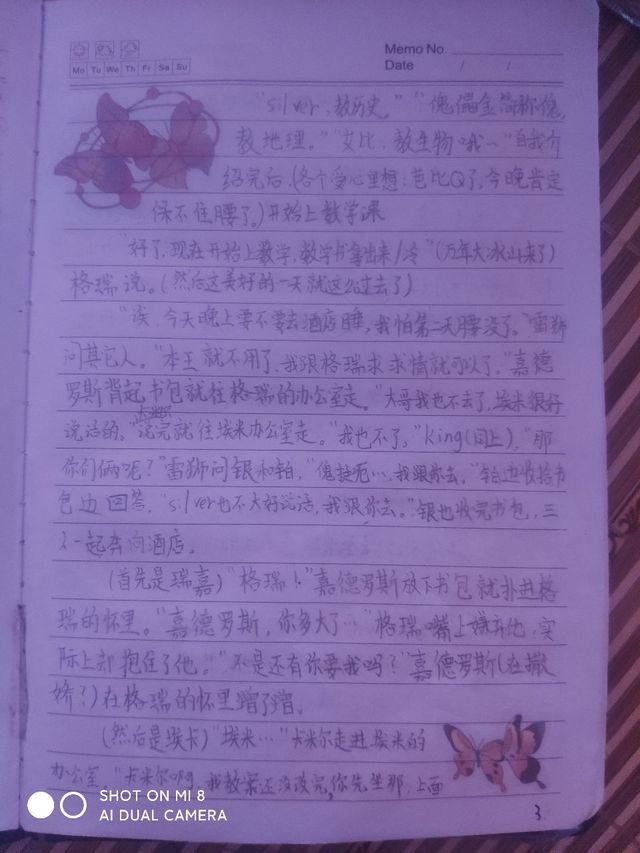 Memo No.
Mo Tu We Th Fr Sa Su
Date / /
"silver,教历史。""傀儡金简称傀,
教地理。""艾比,教生物哦~"自我介
绍完后,(各个受心里想:芭比Q了,今晚肯定
保不住腰了。)开始上数学课
"好了,现在开始上数学,数学书拿出来/冷"(万年大冰山来了)
格瑞说。(然后这美好的一天就这么过去了)
"诶,今天晚上要不要去酒店睡,我怕第二天腰没了。"雷狮
问其它人。"本王就不用了,我跟格瑞求求情就可以了,"嘉德
罗斯背起书包就往格瑞的办公室走。"大哥我也不去了,埃米很好
说话的。"卡米尔说完就往埃米办公室走。"我也不了。"King(同上),"那
你们俩呢?"雷狮问银和铂,"傀挺…我跟你去。"铂边收拾书
包边回答,"silver也不大好说话,我跟你去。"银也收完书包,三
人一起奔向酒店。
(首先是瑞嘉)"格瑞!"嘉德罗斯放下书包就扑进格
瑞的怀里。"嘉德罗斯,你多大了…"格瑞嘴上嫌弃他,实
际上却抱住了他。"不是还有你要我吗?"嘉德罗斯(在撒
娇?)在格瑞的怀里蹭了蹭。
(然后是埃卡)"埃米…"卡米尔走进埃米的
办公室。"卡米尔啊,我教案还没改完,你先坐那,上面
3
SHOT ON MI 8
AI DUAL CAMERA